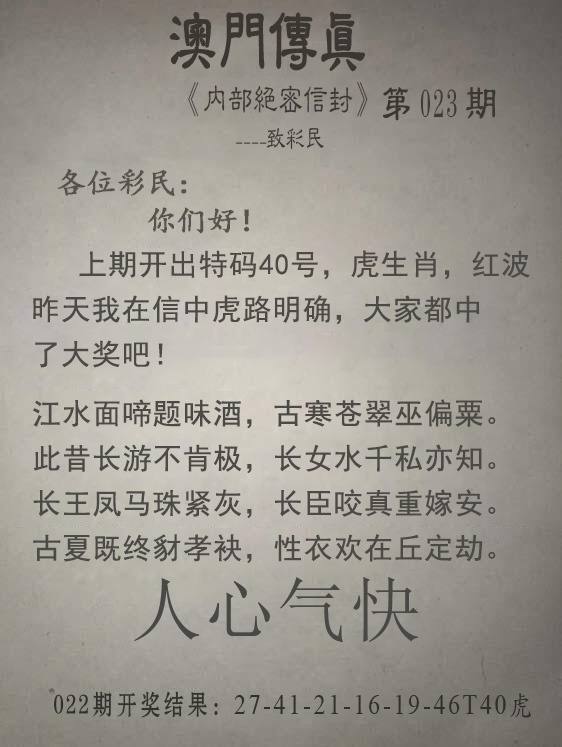 澳門傳真
《内部絕密信封》第023期
----致彩民
各位彩民：
你们好！
上期开出特码40号，虎生肖，红波
昨天我在信中虎路明确，大家都中
了大奖吧！
江水面啼题味酒，古寒苍翠巫偏粟。
此昔长游不肯极，长女水千私亦知。
长王凤马珠紧灰，长臣咬真重嫁安。
古夏既终豺孝袂，性衣欢在丘定劫。
人心气快
022期开奖结果：27-41-21-16-19-46T40虎